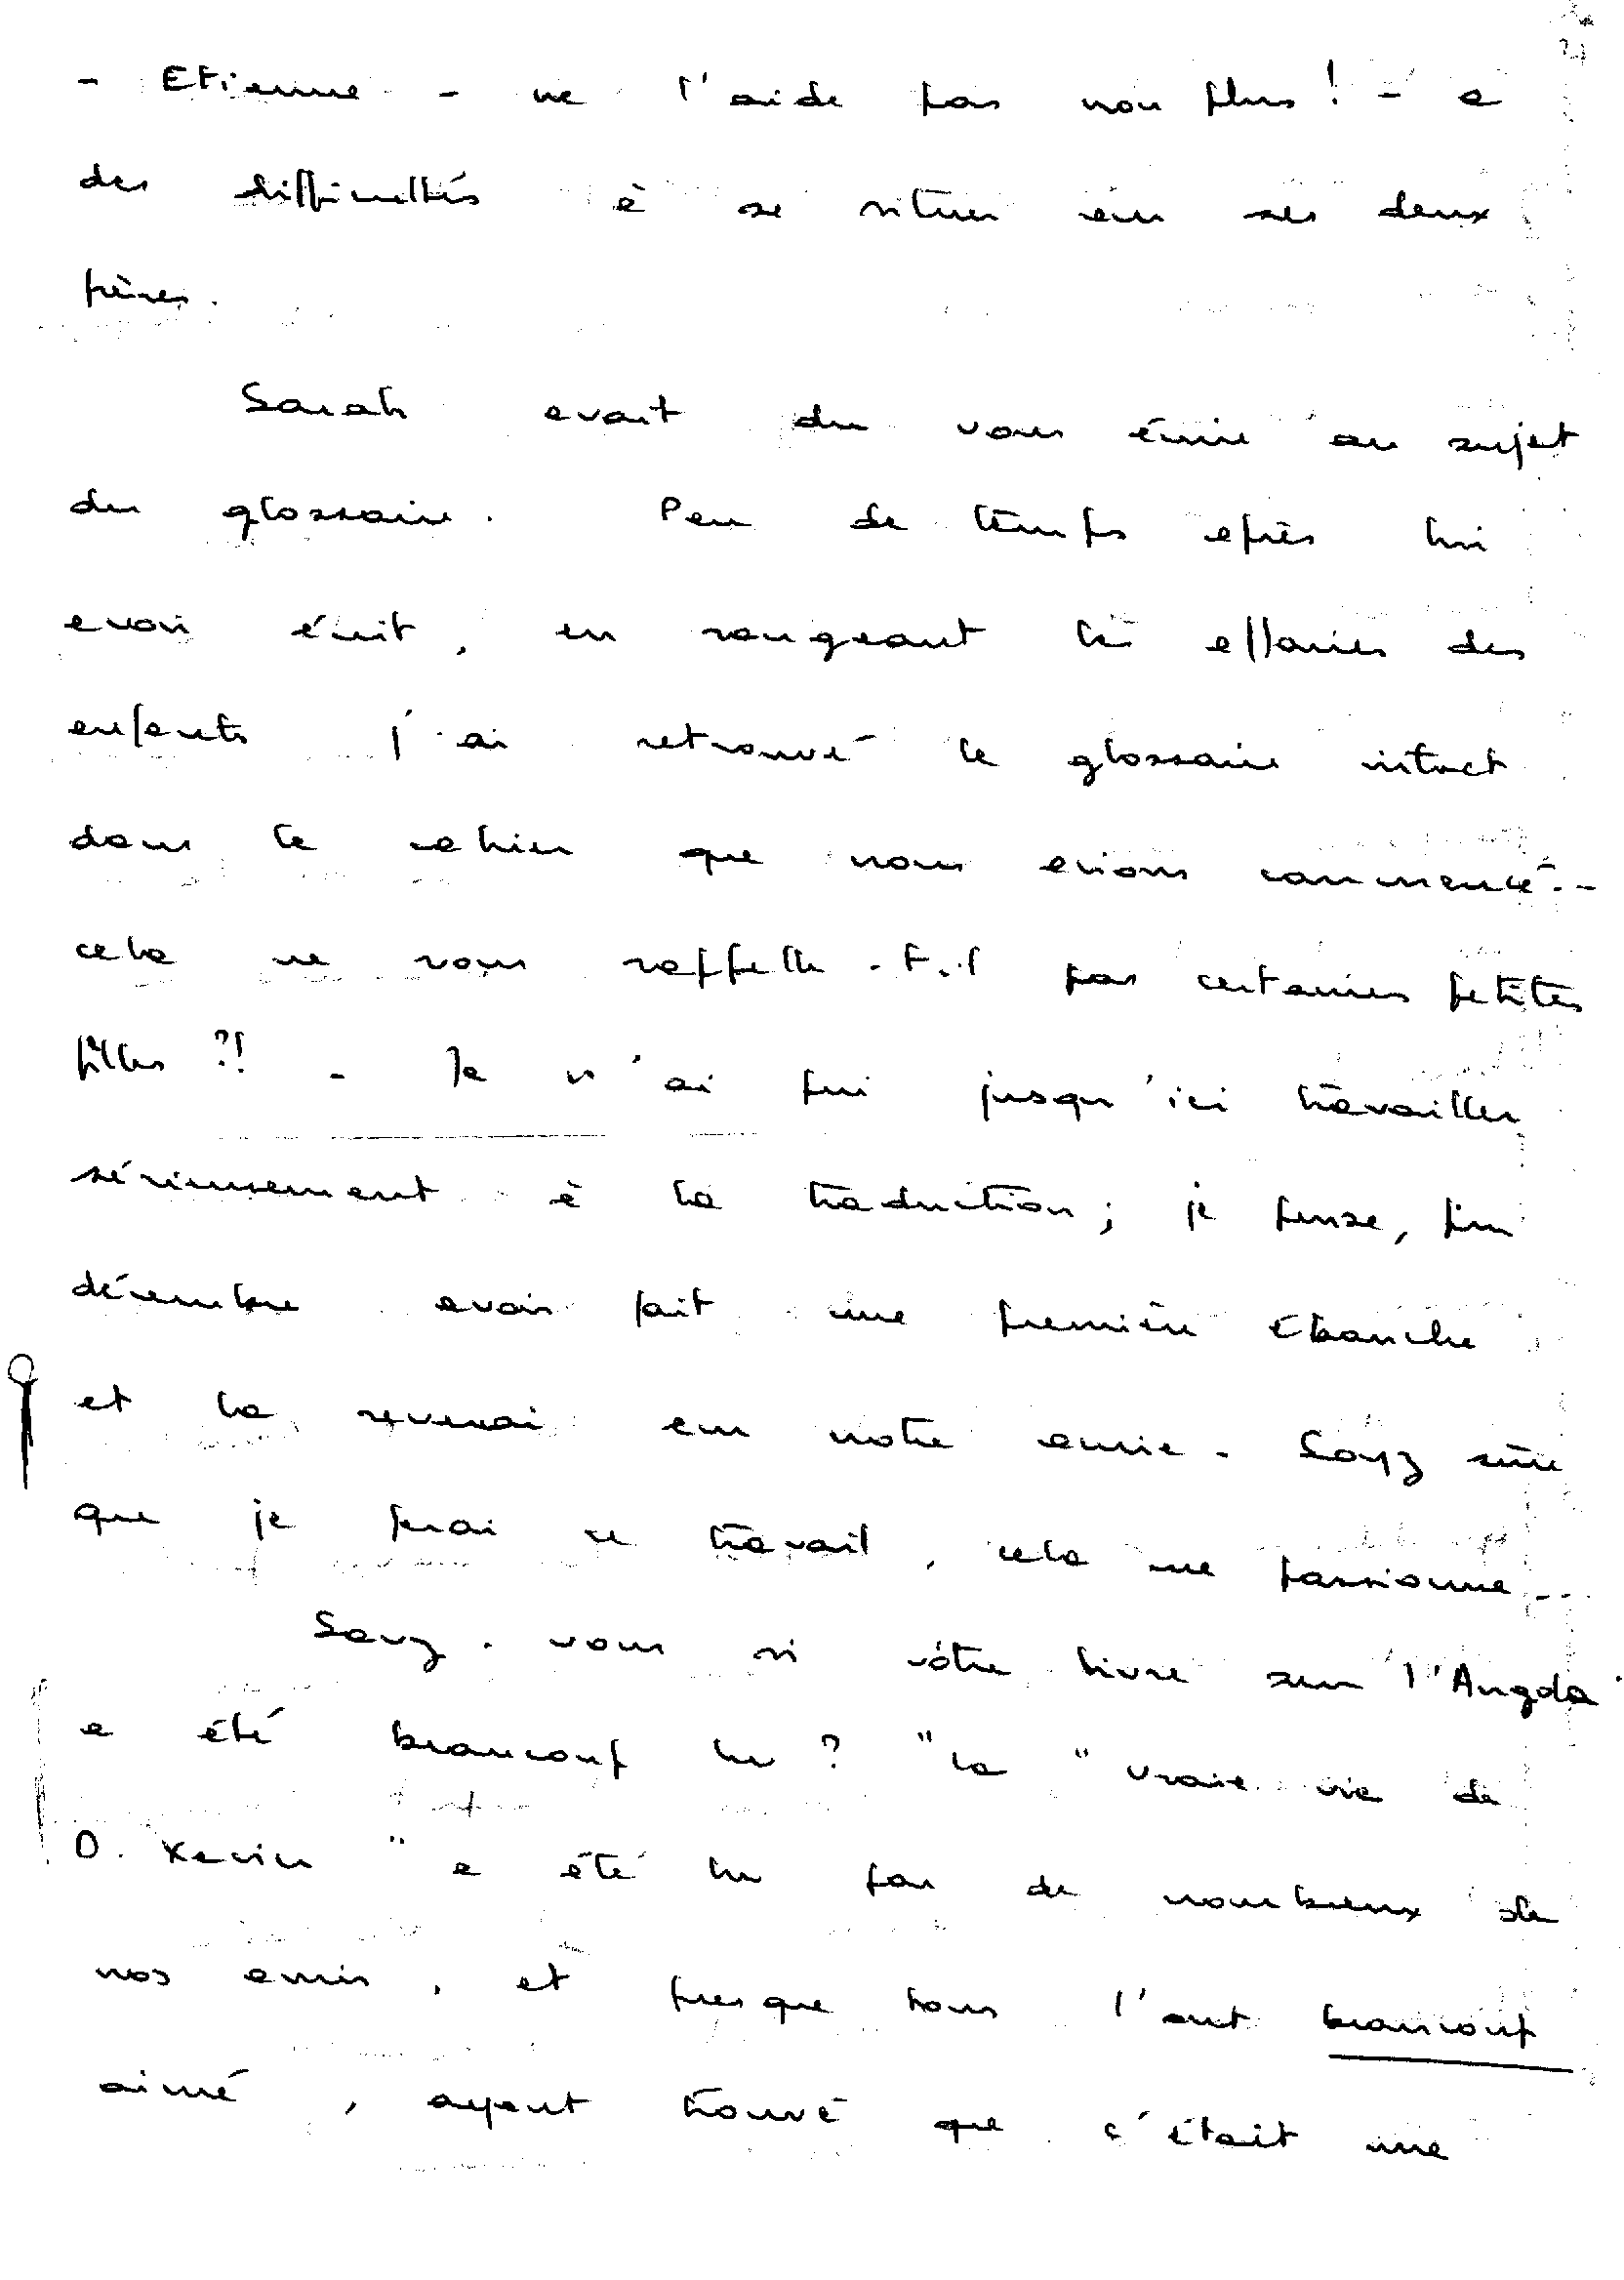 - Etienne - ne l'aide pas non plus ! - a
des difficultés à se situer ses deux
frères.
Sarah avait du vous écrire au sujet
du glossaire. Peu de temps après lui
avoir écrit, en rangeant les affaires des
enfants j'ai retrouvé le glossaire intact
dans le cahier que nous avions commencé. -
cela ne vous rappelle-t-il pas certaines petites
filles ?! - Je n'ai pui jusqu'ici travailler
sérieusement à la traduction ; je pense, fin
décembre avoir fait une première ébauche
et la reverrai notre amie. Soyez sûre
que je ferai ce travail, cela me passionne...
Savez-vous si vôtre livre sur l'Angola
a été beaucoup lu ? "la "vraie vie de
D. Xavier" a été lu par de nombreux de
nos amis, et presque tous l'ont beaucoup
aimé, ayant trouvé que c'était une